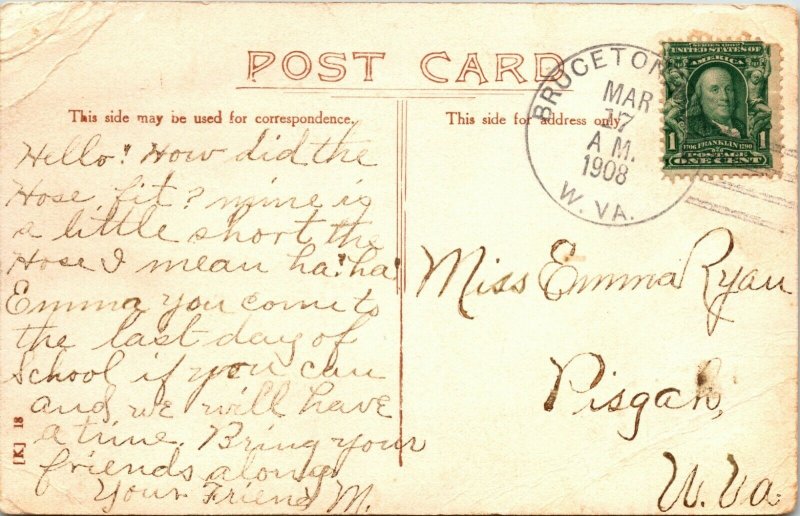 POST CARD
This side may be used for correspondence.
This side for address only
BRUCETON
MAR
17
A M.
1908
W. VA.
SERIES 1902
UNITED STATES OF
AMERICA
1706 FRANKLIN 1790
1 1
POSTAGE
ONE CENT
Hello! How did the
Hose fit? mine is
a little short, the
Hose I mean ha! ha!
Emma you come to
the last day of
School if you can
and we will have
a time. Bring your
friends along
Your Friend M.
Miss Emma Ryan
Pisgah,
W. Va.
[K] 18